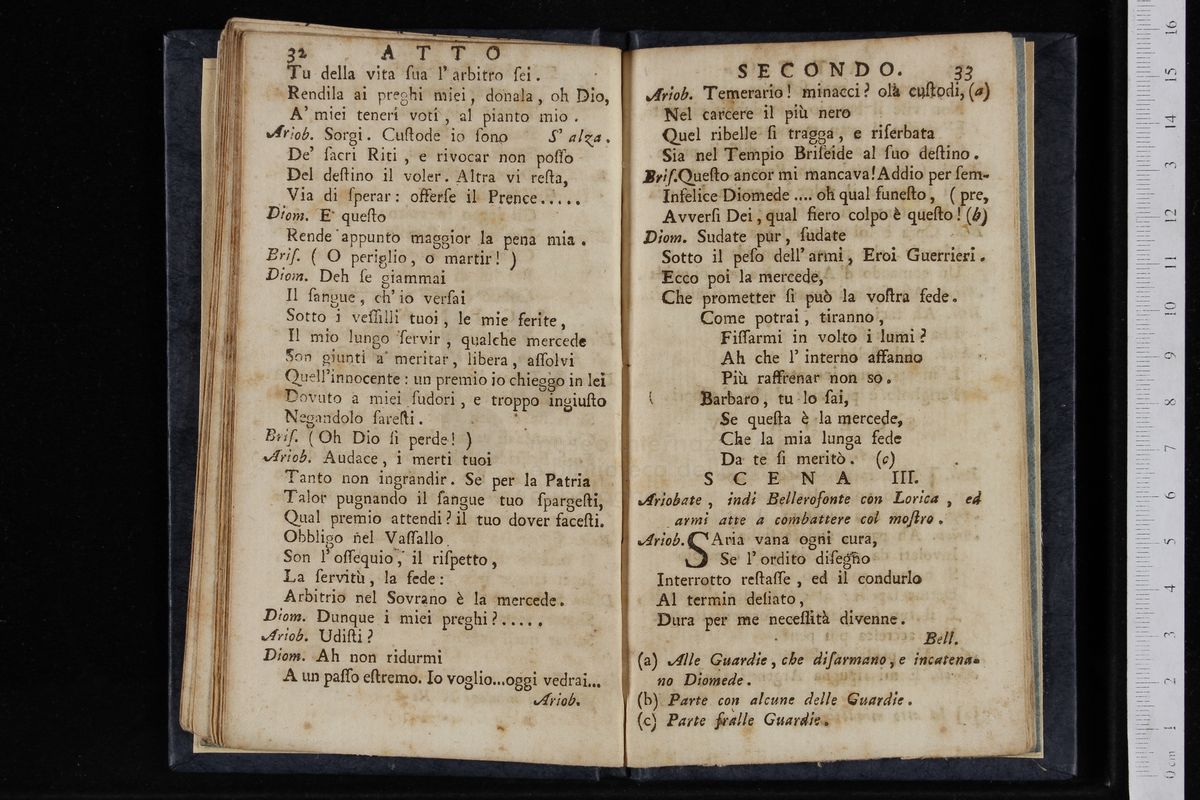 32 ATTO
Tu della vita ſua l' arbitro ſei.
Rendila ai preghi miei, donala, oh Dio,
A' miei teneri voti, al pianto mio.
Ariob. Sorgi. Cuſtode io ſono S' alza.
De' ſacri Riti, e rivocar non poſſo
Del deſtino il voler. Altra vi reſta,
Via di ſperar: offerſe il Prence.....
Diom. E' queſto
Rende appunto maggior la pena mia.
Briſ. ( O periglio, o martir! )
Diom. Deh ſe giammai
Il ſangue, ch' io verſai
Sotto i veſſilli tuoi, le mie ferite,
Il mio lungo ſervir, qualche mercede
Son giunti a meritar, libera, aſſolvi
Quell'innocente: un premio io chieggo in lei
Dovuto a miei ſudori, e troppo ingiuſto
Negandolo ſareſti.
Briſ. ( Oh Dio ſi perde! )
Ariob. Audace, i merti tuoi
Tanto non ingrandir. Se per la Patria
Talor pugnando il ſangue tuo ſpargeſti,
Qual premio attendi? il tuo dover faceſti.
Obbligo nel Vaſſallo
Son l' oſſequio, il riſpetto,
La ſervitù, la fede:
Arbitrio nel Sovrano è la mercede.
Diom. Dunque i miei preghi?.....
Ariob. Udiſti?
Diom. Ah non ridurmi
A un paſſo eſtremo. Io voglio...oggi vedrai...
Ariob.
SECONDO. 33
Ariob. Temerario! minacci? olà cuſtodi, (a)
Nel carcere il più nero
Quel ribelle ſi tragga, e riſerbata
Sia nel Tempio Briſeide al ſuo deſtino.
Briſ. Queſto ancor mi mancava! Addio per ſem-
Infelice Diomede .... oh qual funeſto, ( pre,
Avverſi Dei, qual fiero colpo è queſto! (b)
Diom. Sudate pur, ſudate
Sotto il peſo dell' armi, Eroi Guerrieri.
Ecco poi la mercede,
Che prometter ſi può la voſtra fede.
Come potrai, tiranno,
Fiſſarmi in volto i lumi?
Ah che l' interno affanno
Più raffrenar non so.
Barbaro, tu lo ſai,
Se queſta è la mercede,
Che la mia lunga fede
Da te ſi meritò. (c)
SCENA III.
Ariobate, indi Bellerofonte con Lorica, ed
armi atte a combattere col moſtro.
Ariob. SAria vana ogni cura,
Se l' ordito diſegno
Interrotto reſtaſſe, ed il condurlo
Al termin deſiato,
Dura per me neceſſità divenne.
Bell.
(a) Alle Guardie, che diſarmano, e incatena-
no Diomede.
(b) Parte con alcune delle Guardie.
(c) Parte fralle Guardie.
0 cm 1 2 3 4 5 6 7 8 9 10 11 12 13 14 15 16